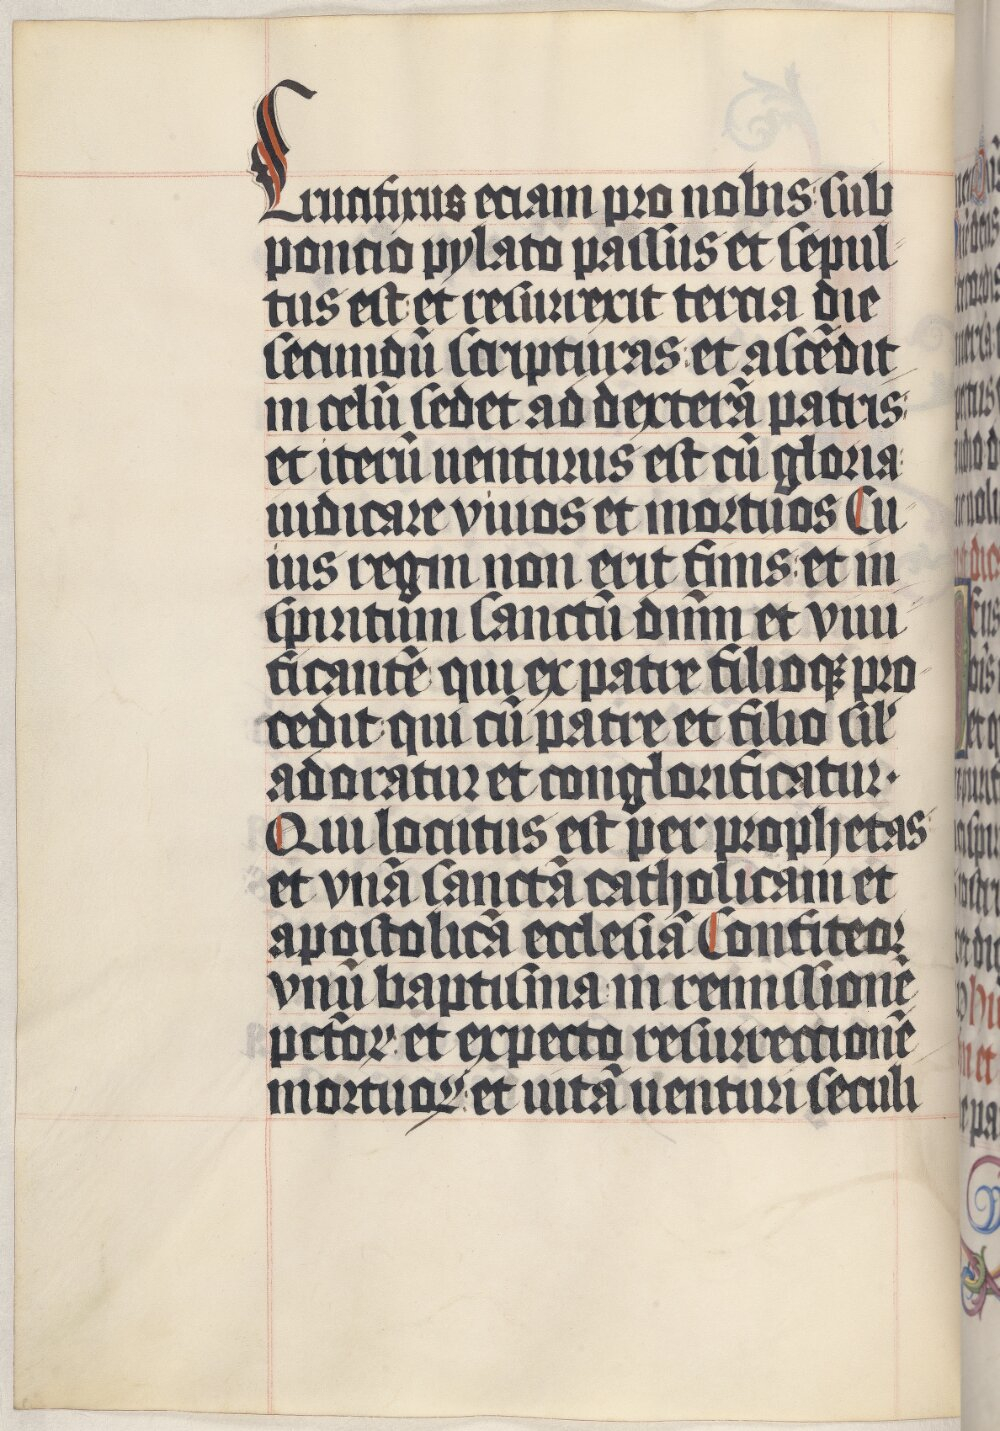 Crucifixus eciam pro nobis: sub
poncio pylato passus et sepul
tus est: et resurrexit tercia die
secundū scripturas: et ascēdit
in celū sedet ad dexterā patris:
et iterū uenturus est cū gloria:
iudicare viuos et mortuos Cu
ius regni non erit finis: et in
spiritum sanctū dn̄m et viui
ficantē qui ex patre filioqꝫ pro
cedit: qui cū patre et filio sil'
adoratur et conglorificatur·
Qui locutus est per prophetas:
et vnā sanctā catholicam et
apostolicā ecclesiā Confiteor
vnū baptisma: in remissionē
pctōꝝ: et expecto resurrectionē
mortuoꝝ: et uitā uenturi seculi